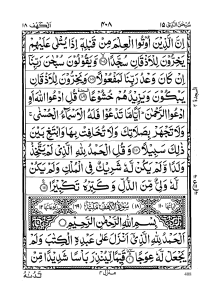 الكهف ١٨
٤٠٨
سبحن الذى ١٥
اِنَّ الَّذِيْنَ اُوْتُوا الْعِلْمَ مِنْ قَبْلِهٖۤ اِذَا يُتْلٰى عَلَيْهِمْ
يَخِرُّوْنَ لِلْاَذْقَانِ سُجَّدًا ۙ وَّيَقُوْلُوْنَ سُبْحٰنَ رَبِّنَاۤ
اِنْ كَانَ وَعْدُ رَبِّنَا لَمَفْعُوْلًا وَيَخِرُّوْنَ لِلْاَذْقَانِ
يَبْكُوْنَ وَيَزِيْدُهُمْ خُشُوْعًا قُلِ ادْعُوا اللّٰهَ اَوِ
ادْعُوا الرَّحْمٰنَ ؕ اَيًّا مَّا تَدْعُوْا فَلَهُ الْاَسْمَآءُ الْحُسْنٰى ۚ
وَلَا تَجْهَرْ بِصَلَاتِكَ وَلَا تُخَافِتْ بِهَا وَابْتَغِ بَيْنَ
ذٰلِكَ سَبِيْلًا وَقُلِ الْحَمْدُ لِلّٰهِ الَّذِيْ لَمْ يَتَّخِذْ
وَلَدًا وَّلَمْ يَكُنْ لَّهٗ شَرِيْكٌ فِي الْمُلْكِ وَلَمْ يَكُنْ
لَّهٗ وَلِيٌّ مِّنَ الذُّلِّ وَكَبِّرْهُ تَكْبِيْرًا
بِسْمِ اللّٰهِ الرَّحْمٰنِ الرَّحِيْمِ
اَلْحَمْدُ لِلّٰهِ الَّذِيْۤ اَنْزَلَ عَلٰى عَبْدِهِ الْكِتٰبَ وَلَمْ
يَجْعَلْ لَّهٗ عِوَجًا قَيِّمًا لِّيُنْذِرَ بَاْسًا شَدِيْدًا مِّنْ